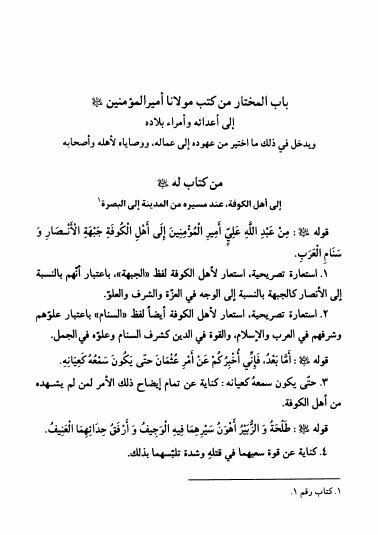 باب المختار من كتب مولانا أمير المؤمنين ﷺ
إلى أعدائه وأمراء بلاده
ويدخل في ذلك ما اختير من عهوده إلى عماله، ووصاياه لأهله وأصحابه
من كتاب له ﷺ
إلى أهل الكوفة، عند مسيره من المدينة إلى البصرة١
قوله ﷺ : مِنْ عَبْدِ اللَّهِ عَلِيٍّ أَمِيرِ الْمُؤْمِنِينَ إِلَى أَهْلِ الْكُوفَةِ جَبْهَةِ الْأَنْصَارِ وَ
سَنَامِ الْعَرَبِ.
١. استعارة تصريحية، استعار لأهل الكوفة لفظ «الجبهة»، باعتبار أنّهم بالنسبة
إلى الأنصار كالجبهة بالنسبة إلى الوجه في العزّة والشرف والعلوّ.
٢. استعارة تصريحية، استعار لأهل الكوفة أيضاً لفظ «السنام» باعتبار علوّهم
وشرفهم في العرب والإسلام، والقوة في الدين كشرف السنام وعلوّه في الجمل.
قوله ﷺ : أَمَّا بَعْدُ، فَإِنِّي أُخْبِرُكُمْ عَنْ أَمْرِ عُثْمَانَ حتّى يَكُونَ سَمْعُهُ كَعِيَانِهِ.
٣. حتّى يكون سمعهُ كعيانه : كناية عن تمام إيضاح ذلك الأمر لمن لم يشهده
من أهل الكوفة.
قوله ﷺ : طَلْحَةُ وَ الزُّبَيْرُ أَهْوَنُ سَيْرِهِمَا فِيهِ الْوَجِيفُ وَ أَرْفَقُ حِدَائِهِمَا الْعَنِيفُ.
٤. كناية عن قوة سعيهما في قتله وشدة تلبّسهما بذلك.
١. كتاب رقم ١.